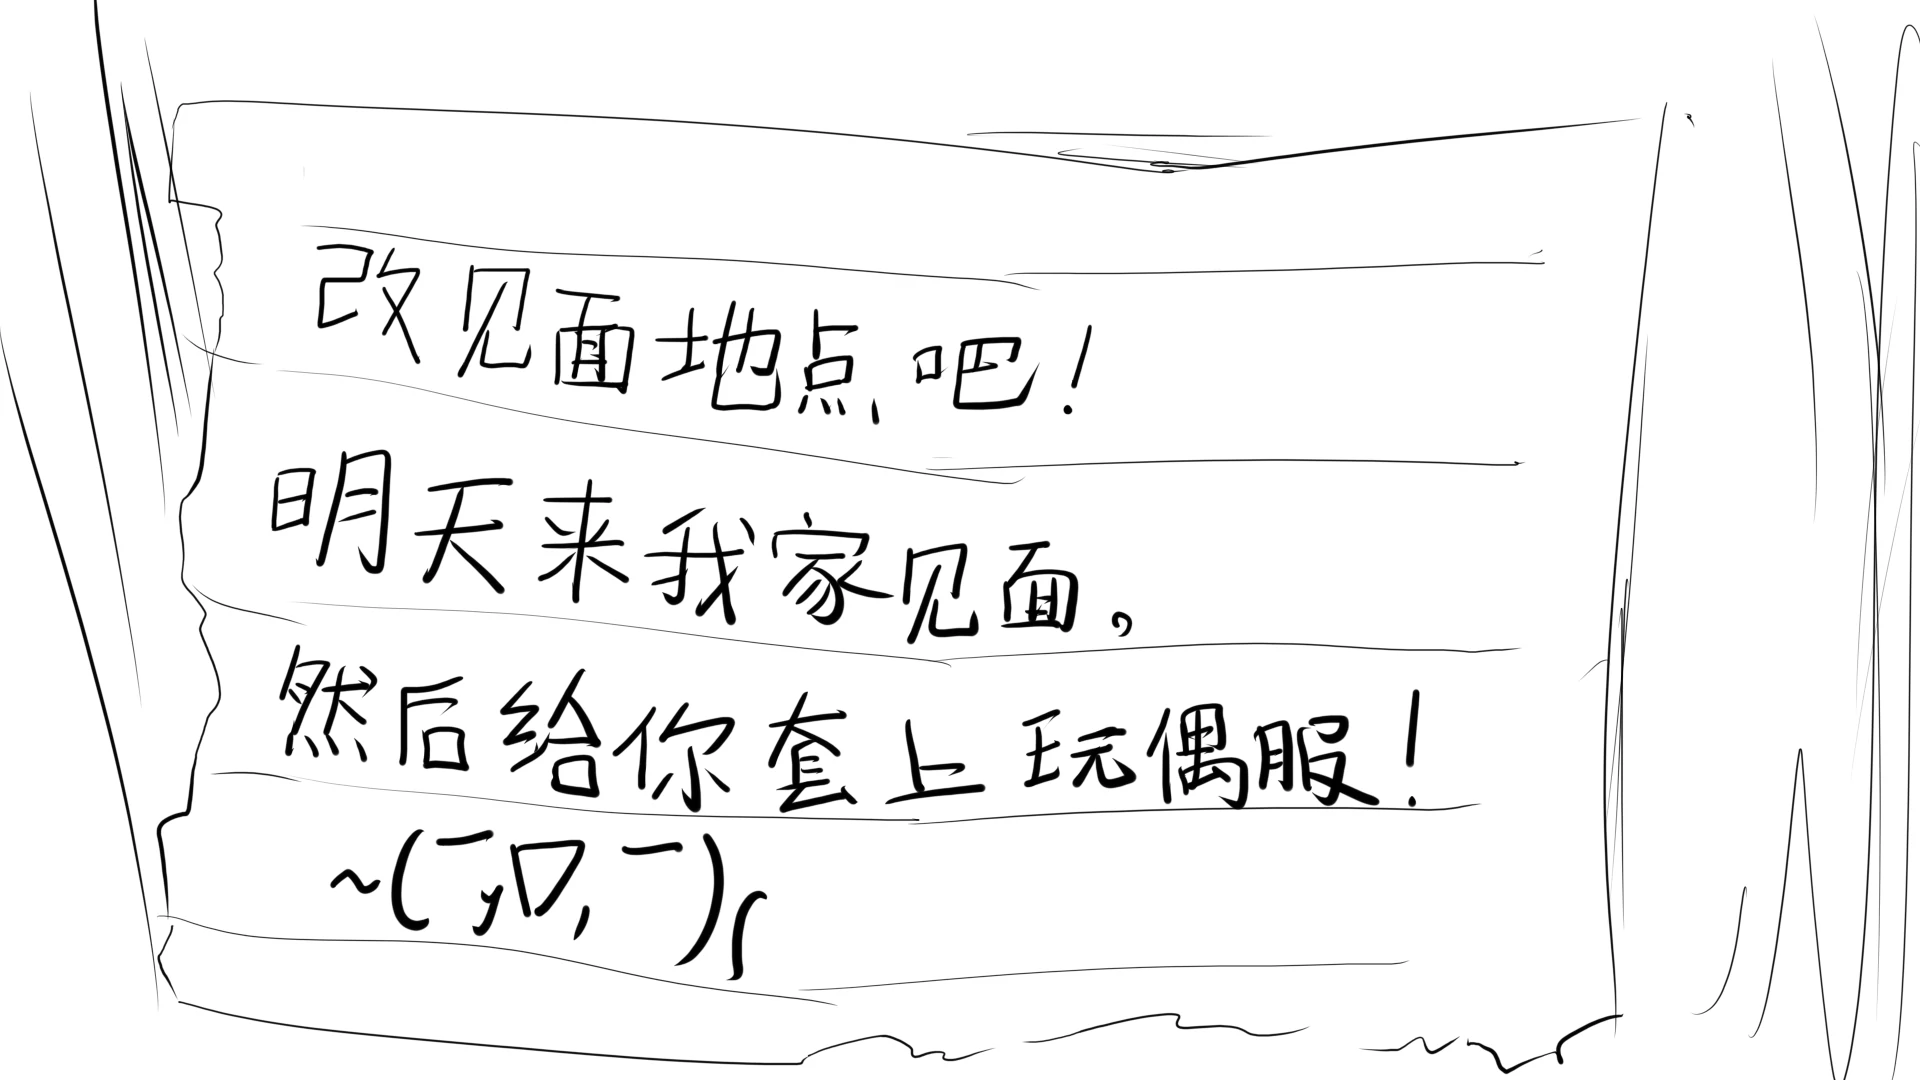 改见面地点吧！
明天来我家见面。
然后给你套上玩偶服！
~(￣,▽,￣)~